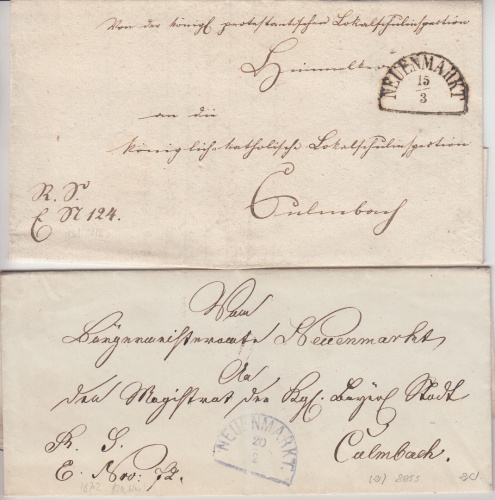 Von der königl protestantischen Lokalschulinspektion
Himmelkron
NEUENMARKT
15
3
an die
königlich katholische Lokalschulinspektion
R. S.
E N 124.
Culmbach
Vom
Bürgermeisteramte Neuenmarkt
An
den Magistrat der Kgl. Bayer Stadt
Culmbach.
R. S.
E. No: 72.
NEUENMARKT.
20